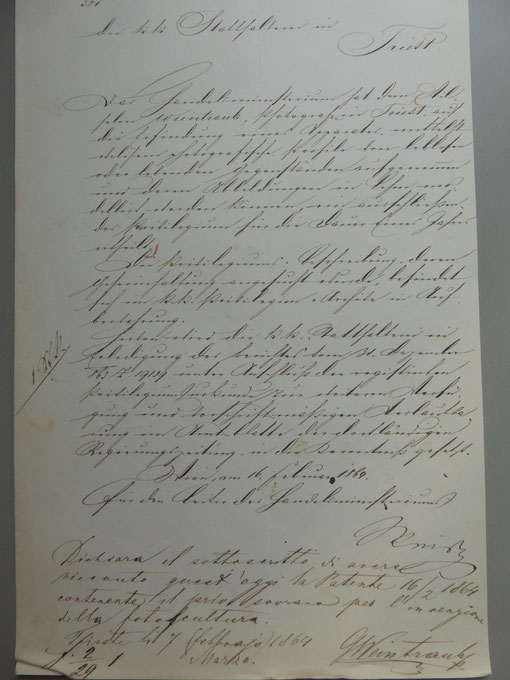 der k. k. Statthalterei in
Triest.
Das Handelsministerium hat dem
Wuntraub, Photograf in Triest auf
die Erfindung eines Apparates, mittelst
welchem photografische Profile von leblosen
oder lebenden Gegenständen aufgenommen
und deren Abbildungen in mo-
dellirt werden können, ein ausschließen-
des Privilegium für die Dauer Eines Jahres
ertheilt.
Die Privilegiums-Beschreibung, deren
Geheimhaltung angesucht wurde, befindet
sich im k. k. Privilegien-Archive in Auf-
bewahrung.
wird die k. k. Statthalterei in
Erledigung des Berichtes vom 31. Dezember
unter Anschluß der registrirten
Privilegiumsurkunde zur weiteren Verfü-
gung und vorschriftmäßigen Verlautba-
rung im Amtsblatte der dortländigen
Regierungszeitung, in die Kenntniß gesetzt.
Wien, am 16. Februar 1864
Für den Leiter des Handelsministeriums
Dichiara il sottoscritto di avere
ricevuto quest'oggi la Patente 16/2 1864
contenente il priv. sovrano per l'invenzione
della fotoscultura.
Trieste li 7 1864
Marka.